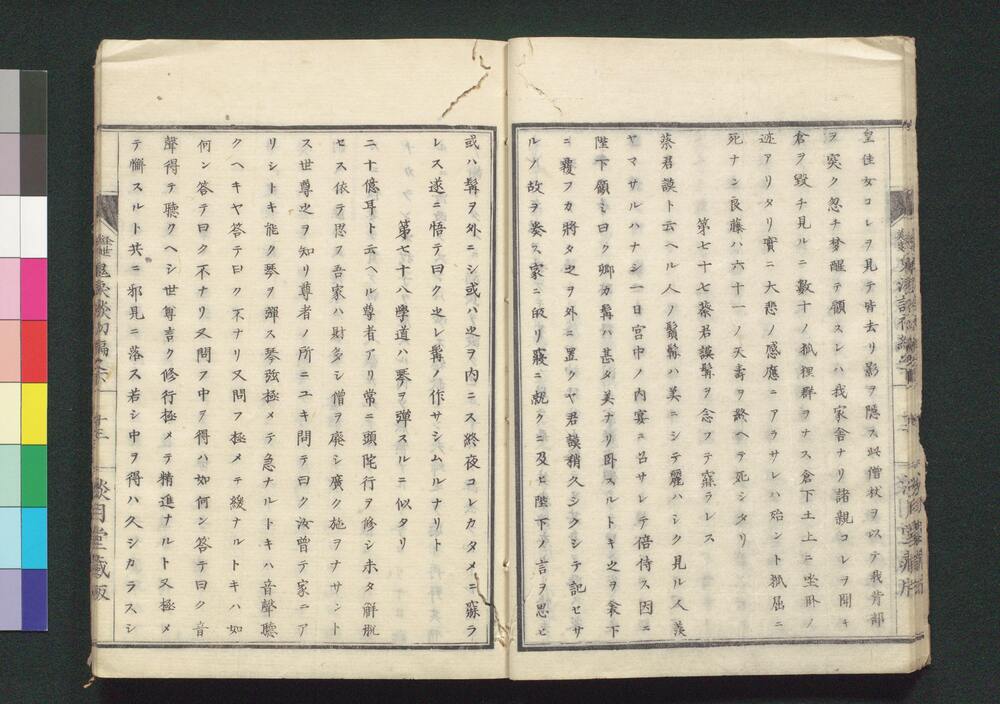 皇佳女コレヲ見テ皆去リ影ヲ隠ス此僧杖ヲ以テ我背部
ヲ突ク忽チ梦醒テ顧スレハ我家舎ナリ諸親コレヲ聞キ
倉ヲ毀チ見ルニ數十ノ狐狸群ヲナス倉下土上ニ坐臥ノ
迹アリタリ實ニ大悲ノ感應ニアラサレハ殆ント狐屈ニ
死ナン良藤ハ六十一ノ天壽ヲ終ヘテ死シタリ
第七十七蔡君謨髯ヲ念フテ寐ラレス
蔡君謨ト云ヘル人ノ鬚髯ハ美ニシテ麗ハシク見ル人羨
ヤマサルハナシ一日宮中ノ内宴ニ召サレテ倍侍ス因ニ
陛下顧ミ曰ク卿カ髯ハ甚タ美ナリ臥スルトキ之ヲ衾下
ニ覆フカ將タ之ヲ外ニ置クヤ君謨稍久シクシテ記セサ
ルノ故ヲ奏ス家ニ皈リ寢ニ就クニ及ヒ陛下ノ言ヲ思ヒ
或ハ髯ヲ外ニシ或ハ之ヲ内ニス終夜コレカタメニ寐ラ
レス遂ニ悟テ曰ク之レ髯ノ作サシムルナリト
第七十八學道ハ琴ヲ彈スルニ似タリ
二十億耳ト云ヘル尊者アリ常ニ頭陀行ヲ修シ未タ解脱
セス依テ思フ吾家ハ財多シ僧ヲ廢シ廣ク施ヲナサント
ス世尊之ヲ知リ尊者ノ所ニユキ問テ曰ク汝曾テ家ニア
リシトキ能ク琴ヲ彈ス琴弦極メテ急ナルトキハ音聲聽
クヘキヤ答テ曰ク不ナリ又問フ極メテ緩ナルトキハ如
何ン答テ曰ク不ナリ又問フ中ヲ得ハ如何ン答テ曰ク音
聲得テ聽クヘシ世尊言ク修行極メテ精進ナルト又極メ
テ懈スルト共ニ邪見ニ落ス若シ中ヲ得ハ久シカラスシ
十三
談月堂藏版